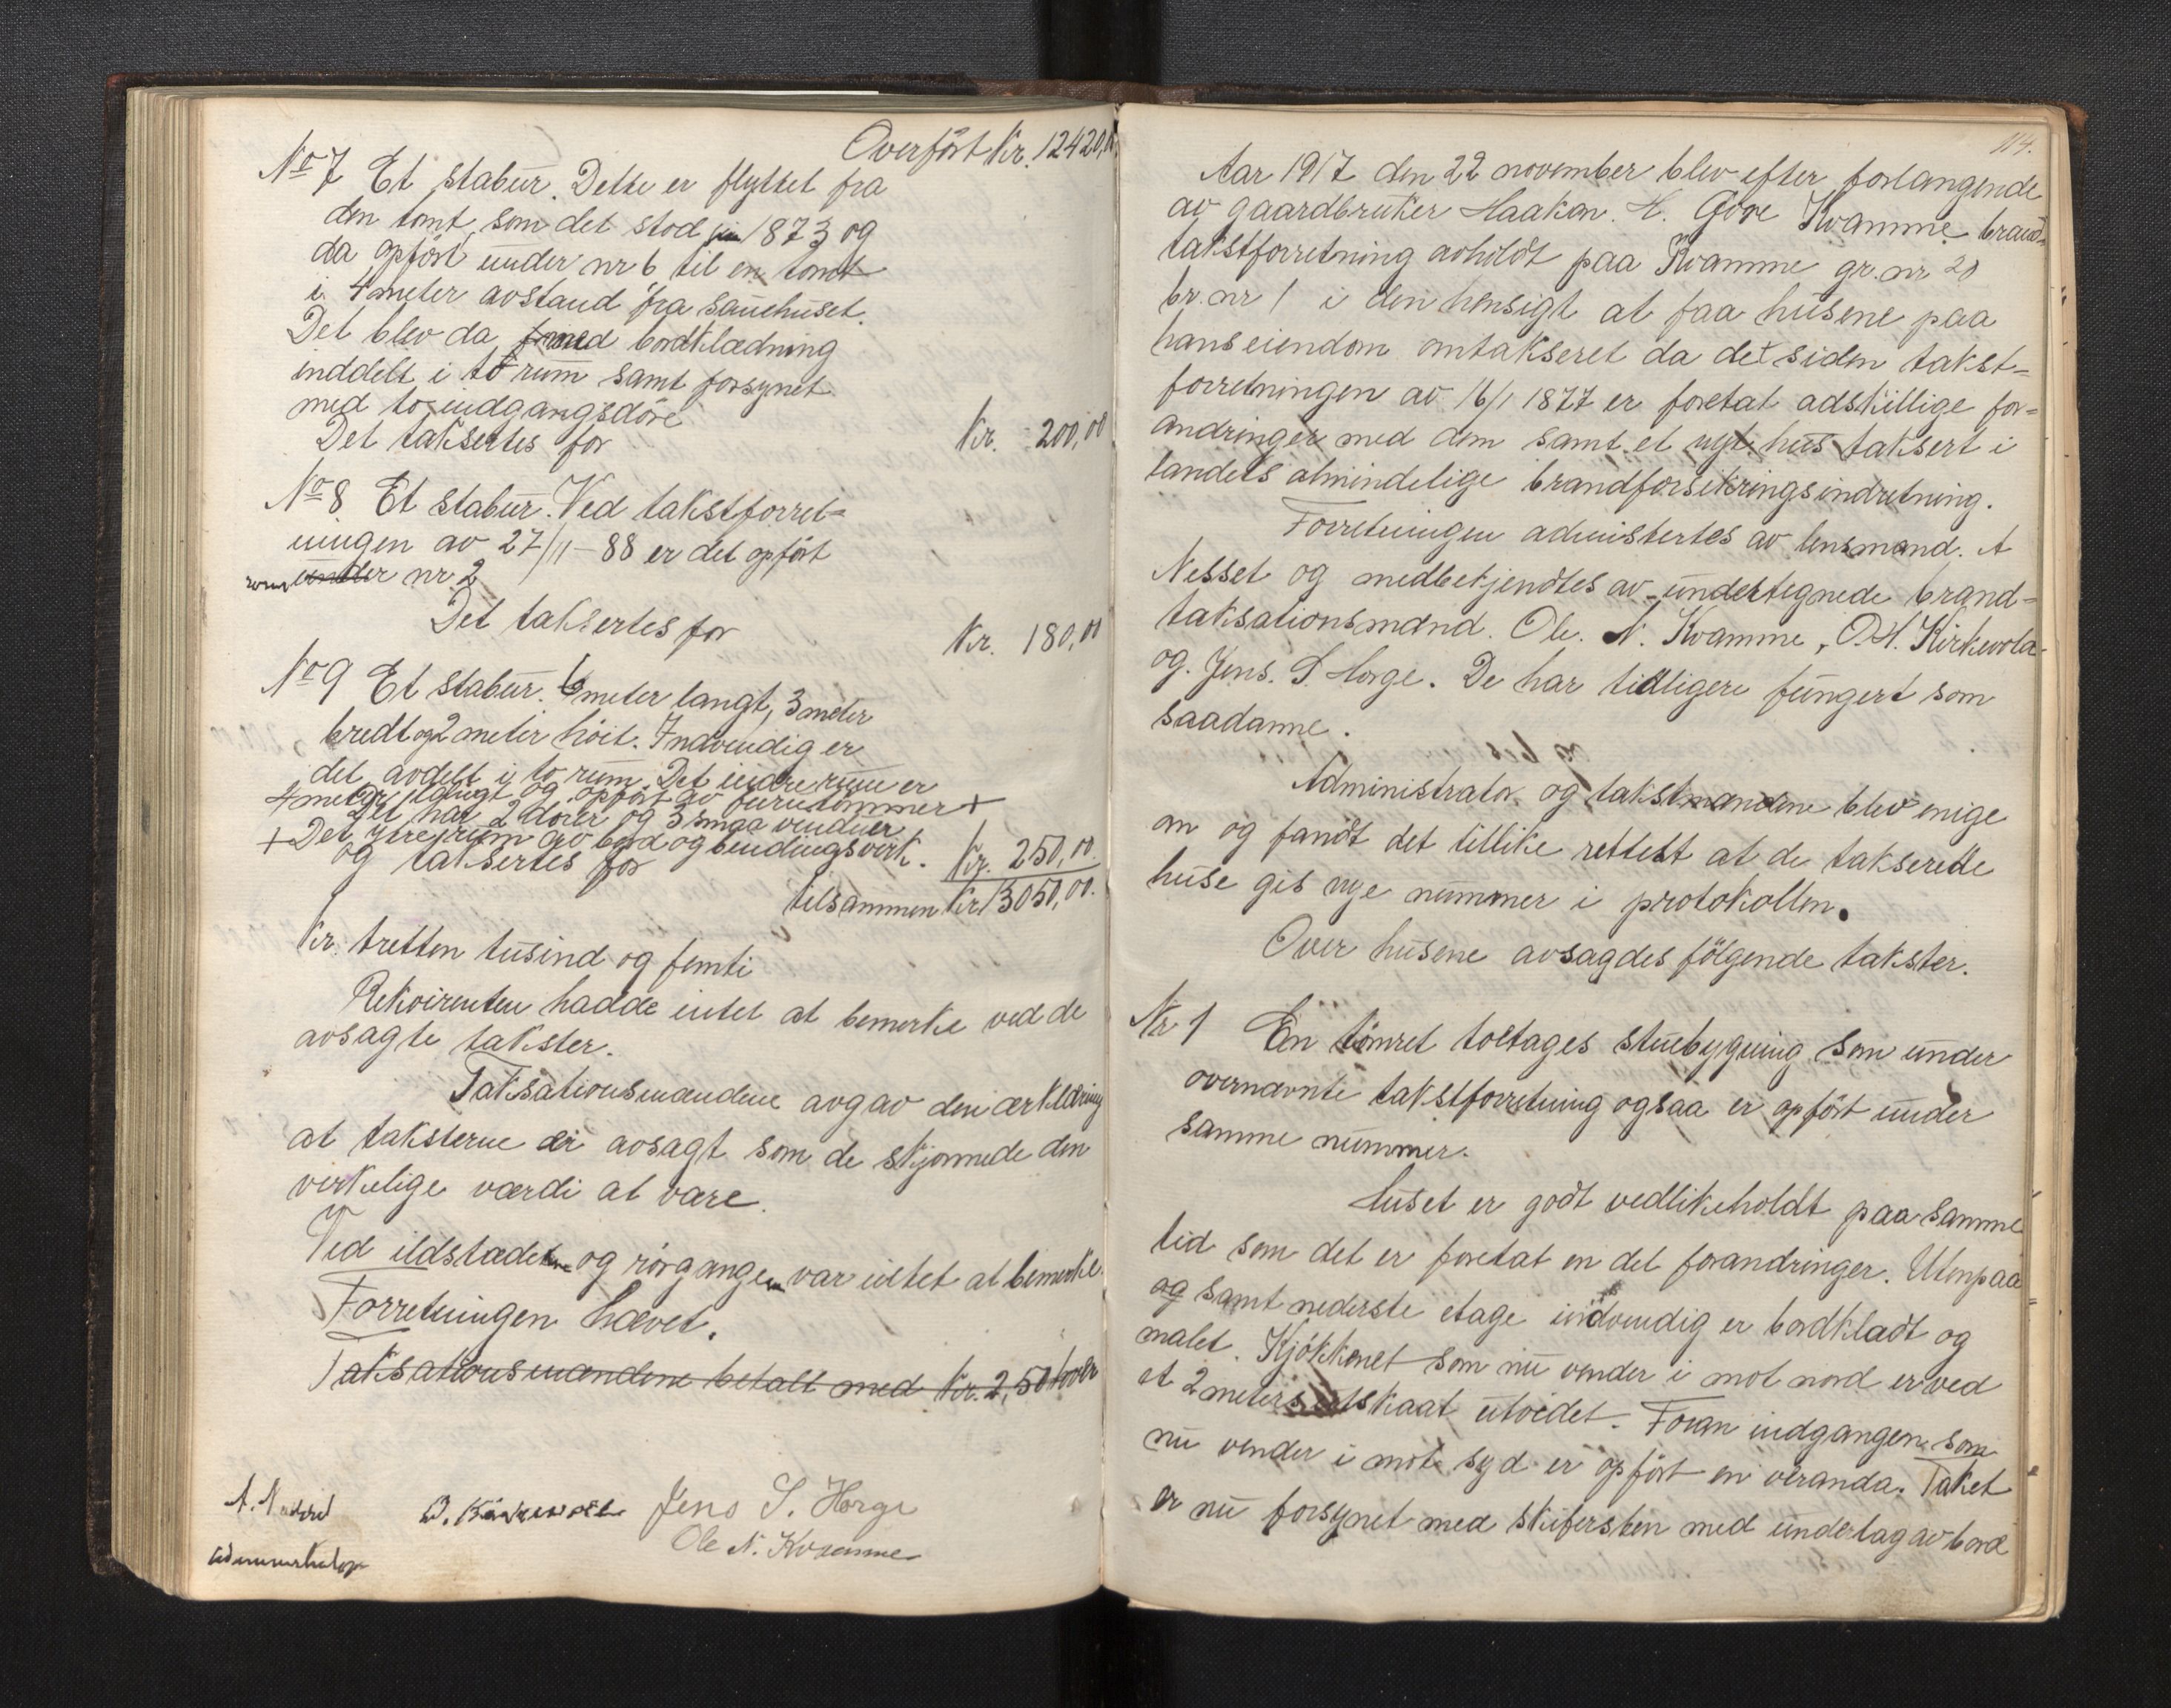 Overført Kr. 12420,00
No 7 Et stabur. Dette er flyttet fra
den tomt, som det stod i 1873 og
da opført under nr 6 til en tomt
i 4 meter avstand fra sauehuset.
Det blev da med bordklædning
inddelt i to rum samt forsynet
med to indgangsdøre
Det taksertes for Kr. 200,00
No 8 Et stabur. Ved takstforret-
ningen av 27/11-88 er det opført
som under nr. 2
Det taksertes for Kr. 180,00
No 9 Et stabur. 6 meter langt, 3 meter
bredt og 2 meter høit. Indvendig er
det avdelt i to rum. Det indre rum er
4 meter langt og opført av furutømmer +
Det har 2 dører og 3 smaa vinduer
+ Det ytre rum av bord og bindingsverk.
og taksertes for Kr. 250,00
tilsammen Kr 13050,00.
Kr. tretten tusind og femti
Rekvirenten hadde intet at bemerke ved de
avsagte takster.
Taksationsmændene avgav den erklæring
at taksterne er avsagt som de skjønnede den
virkelige værdi at være.
Ved ildstedene og rørgangen var intet at bemerke.
Forretningen hævet.
Taksationsmændene betalt med Kr. 2,50 hver
A. Nesset O. Kirkevold Jens S. Horge
administrator Ole N. Kvamme
114.
Aar 1917 den 22 november blev efter forlangende
av gaardbruker Haakon. H. Gore Kvamme brand-
takstforretning avholdt paa Kvamme gr. nr 20
br. nr 1 i den hensigt at faa husene paa
hans eiendom omtakseret da det siden takst-
forretningen av 16/1 1877 er foretat adskillige for-
andringer med dem samt et nyt hus taksert i
landets almindelige brandforsikringsindretning.
Forretningen administertes av lensmand. A
Nesset og medbetjendtes av undertegnede brand-
taksationsmænd. Ole. N. Kvamme, O. H. Kirkevold
og. Jens. S. Horge. De har tidligere fungert som
saadanne.
Administrator og takstmændene blev enige
om og fandt det tillike rettest at de takserede
huse gis nye nummer i protokollen.
Over husene avsagdes følgende takster.
Nr 1 En tømret toetages stuebygning som under
overnævnte takstforretning ogsaa er opført under
samme nummer.
Huset er godt vedlikeholdt paa samme
tid som det er foretat en del forandringer. Utenpaa
og samt nederste etage indvendig er bordklædt og
malet. Kjøkkenet som nu vender i mot nord er ved
et 2 meters utskaat utvidet. Foran indgangen som
nu vender i mot syd er opført en veranda. Taket
er nu forsynet med skifersten med underlag av bord